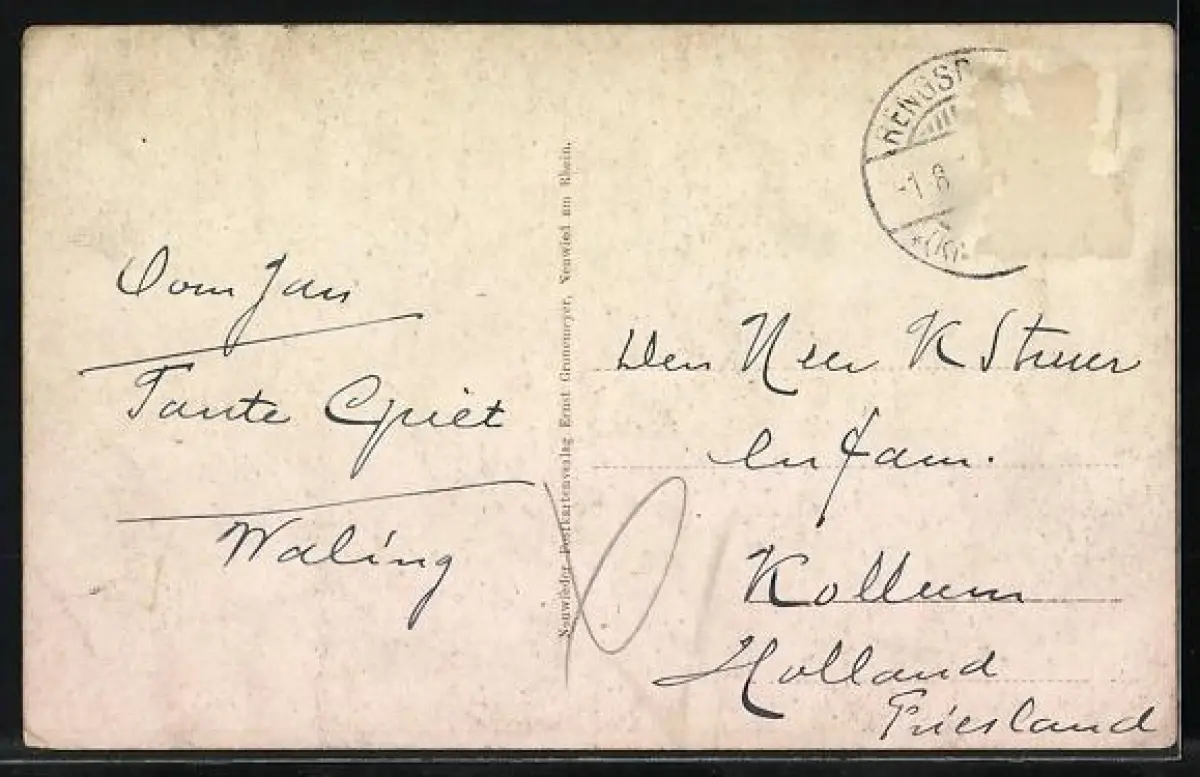 RENGSD
-1.8
Oom Jan
Tante Griet
Waling
Neuwieder Postkartenverlag Ernst Gronemeyer, Neuwied am Rhein.
Den Heer K Struer
en fam.
Kollum
Holland
Friesland